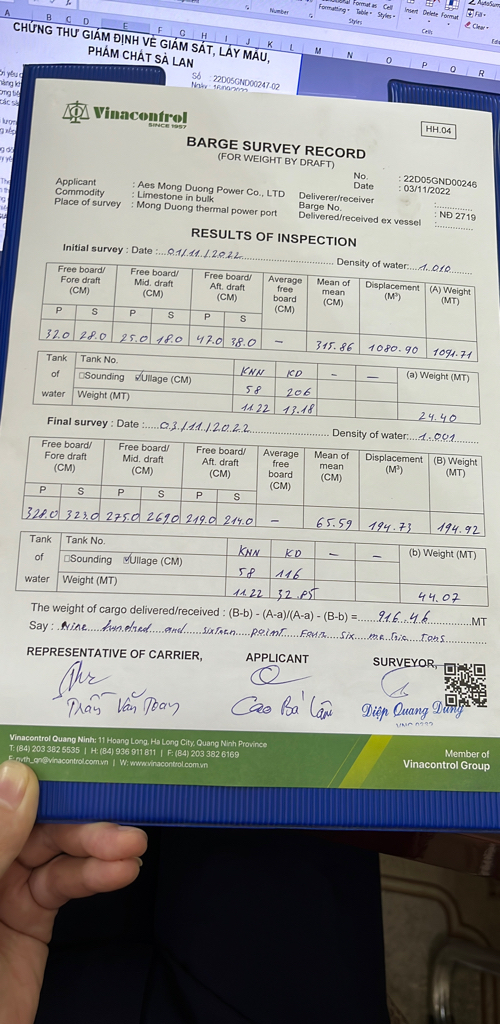 CHỨNG THƯ GIÁM ĐỊNH VỀ GIÁM SÁT, LẤY MẪU,
PHẨM CHẤT SÀ LAN
Số : 22D05GND00247-02
Ngày : 16/09/2022
Vinacontrol
SINCE 1957
HH.04
BARGE SURVEY RECORD
(FOR WEIGHT BY DRAFT)
No. : 22D05GND00246
Date : 03/11/2022
Applicant : Aes Mong Duong Power Co., LTD
Commodity : Limestone in bulk
Place of survey : Mong Duong thermal power port
Deliverer/receiver :
Barge No. : NĐ 2719
Delivered/received ex vessel :
RESULTS OF INSPECTION
Initial survey : Date : 01/11/2022 Density of water: 1.010
Free board/ Fore draft (CM) Free board/ Mid. draft (CM) Free board/ Aft. draft (CM) Average free board (CM) Mean of mean (CM) Displacement (M³) (A) Weight (MT)
P S P S P S
32.0 28.0 25.0 18.0 47.0 38.0 – 315.86 1080.90 1091.71
Tank of water Tank No. KNN KD – –
☐Sounding ☑Ullage (CM) 58 206 (a) Weight (MT)
Weight (MT) 11.22 13.18 24.40
Final survey : Date : 03/11/2022 Density of water: 1.001
Free board/ Fore draft (CM) Free board/ Mid. draft (CM) Free board/ Aft. draft (CM) Average free board (CM) Mean of mean (CM) Displacement (M³) (B) Weight (MT)
P S P S P S
328.0 323.0 275.0 269.0 219.0 214.0 – 65.59 194.73 194.92
Tank of water Tank No. KNN KD – – (b) Weight (MT)
☐Sounding ☑Ullage (CM) 58 116
Weight (MT) 11.22 32.85 44.07
The weight of cargo delivered/received : (B-b) - (A-a)/(A-a) - (B-b) = 916.46 MT
Say : Nine hundred and sixteen point four six metric tons
REPRESENTATIVE OF CARRIER, APPLICANT SURVEYOR,
Trần Văn Toan Cao Bá Lâm Diệp Quang Dũng
Vinacontrol Quang Ninh: 11 Hoang Long, Ha Long City, Quang Ninh Province
T: (84) 203 382 5535 | H: (84) 936 911 811 | F: (84) 203 382 6169
E: gvth_qn@vinacontrol.com.vn | W: www.vinacontrol.com.vn
Member of
Vinacontrol Group